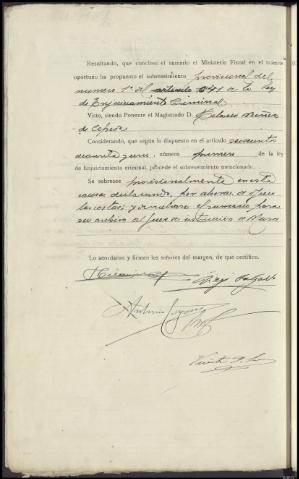 Resultando, que concluso el sumario el Ministerio Fiscal en el trámite
oportuno ha propuesto el sobreseimiento provisional del
número 1º del artículo 641 de la Ley
de Enjuiciamiento Criminal
Visto, siendo Ponente el Magistrado D. Núñez
de Cepeda
Considerando, que según lo dispuesto en el artículo seiscientos
cuarenta y uno, número primero de la ley
de Enjuiciamiento criminal, procede el sobreseimiento mencionado.
Se sobresee provisionalmente esta
causa declarando, por ahora, de oficio
las costas y devuélvase el sumario para
su archivo al Juez de instrucción de
Lo acordaron y firman los señores del margen, de que certifico.
Antonio